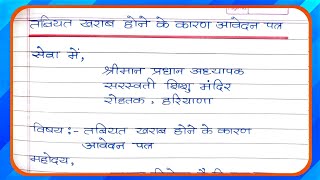 तबियत खराब होने के कारण आवेदन पत्र
सेवा में,
श्रीमान प्रधान अध्यापक
सरस्वती शिशु मंदिर
रोहतक, हरियाणा
विषय:- तबियत खराब होने के कारण
आवेदन पत्र
महोदय,